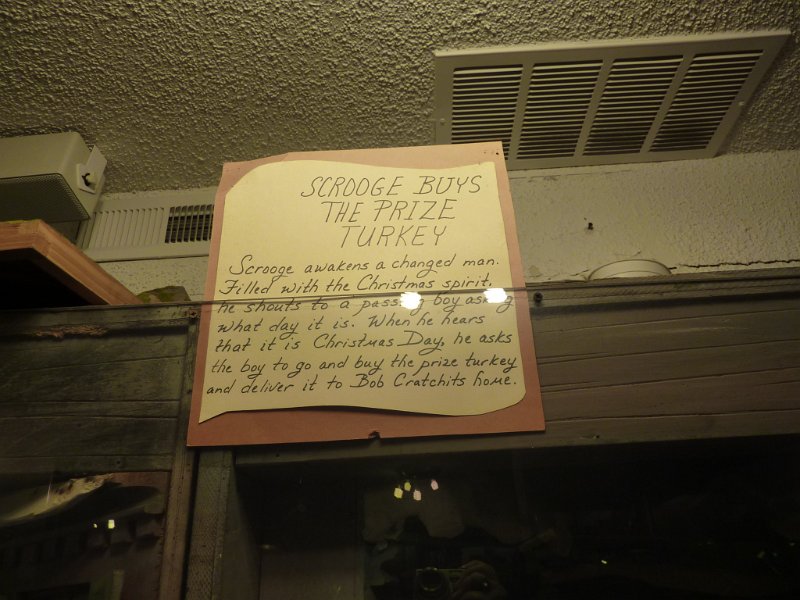 SCROOGE BUYS
THE PRIZE
TURKEY
Scrooge awakens a changed man.
Filled with the Christmas spirit,
he shouts to a passing boy asking
what day it is. When he hears
that it is Christmas Day, he asks
the boy to go and buy the prize turkey
and deliver it to Bob Cratchits home.